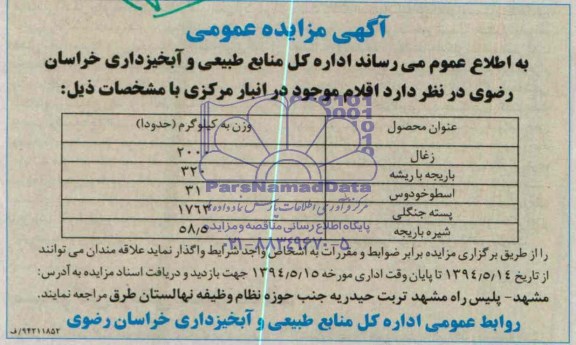 آگهی مزایده عمومی
به اطلاع عموم می رساند اداره کل منابع طبیعی و آبخیزداری خراسان
رضوی در نظر دارد اقلام موجود در انبار مرکزی با مشخصات ذیل:
عنوان محصول وزن به کیلوگرم (حدودا)
زغال ۲۰۰۰
باریجه با ریشه ۳۲۰
اسطوخودوس ۳۱
پسته جنگلی ۱۷۶۳
شیره باریجه ۵۸٫۵
ParsNamadData
مرکز فرآوری اطلاعات پارس نماد داده ها
پایگاه اطلاع رسانی مناقصه و مزایده
۰۲۱-۸۸۳۴۹۶۷۰-۵
را از طریق برگزاری مزایده برابر ضوابط و مقررات به اشخاص واجد شرایط واگذار نماید علاقه مندان می توانند
از تاریخ ۱۳۹۴٫۵٫۱۴ تا پایان وقت اداری مورخه ۱۳۹۴٫۵٫۱۵ جهت بازدید و دریافت اسناد مزایده به آدرس:
مشهد- پلیس راه مشهد تربت حیدریه جنب حوزه نظام وظیفه نهالستان طرق مراجعه نمایند.
روابط عمومی اداره کل منابع طبیعی و آبخیزداری خراسان رضوی
۹۴۲۱۱۸۵۲/ف